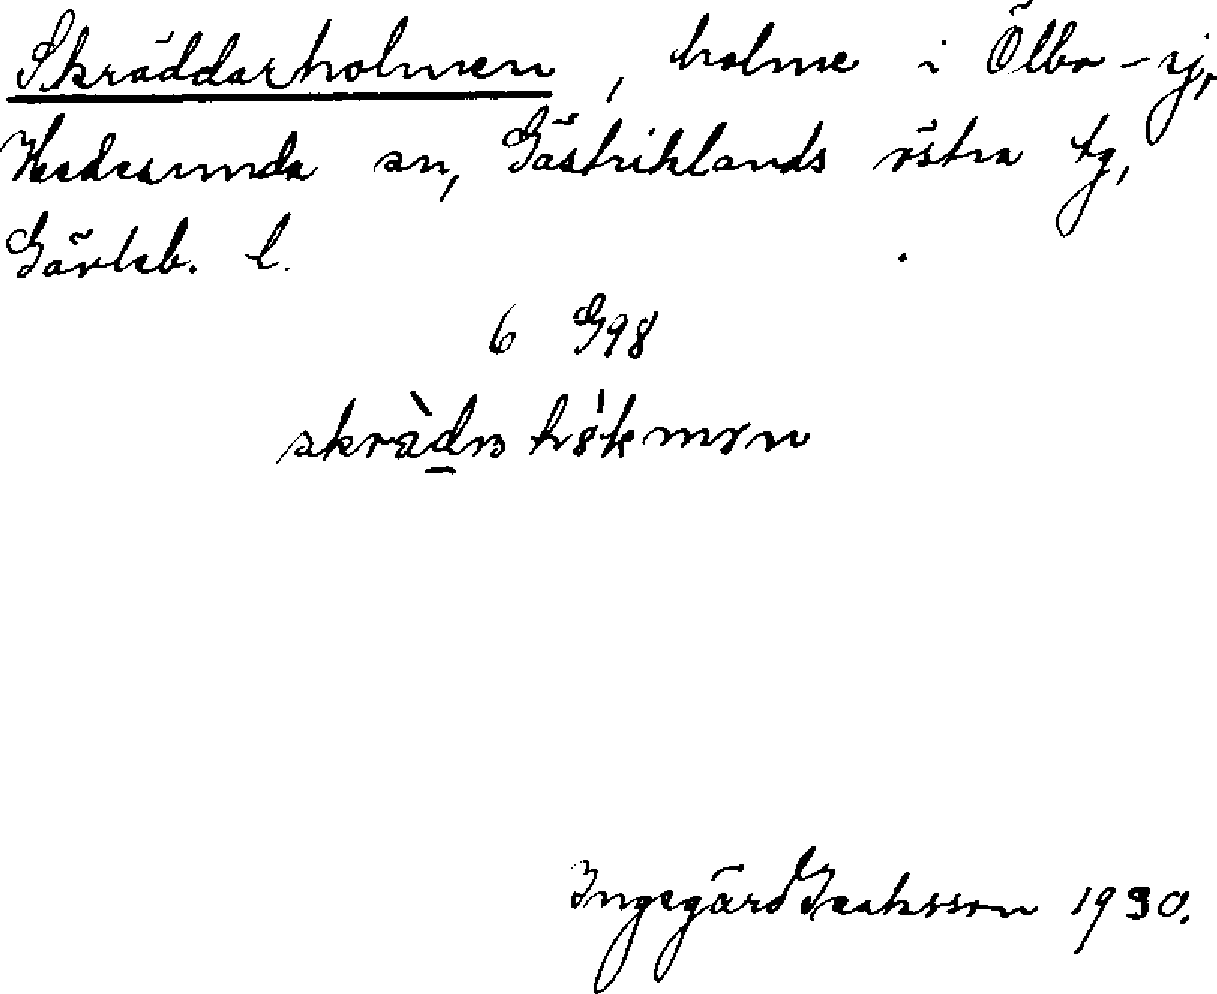 Skräddarholmen, holme i Ölbo-sj,
Hedesunda sn, Gästriklands östra tg,
Gävleb. l.
6 G98
Ingegärd Isaksson 1930.